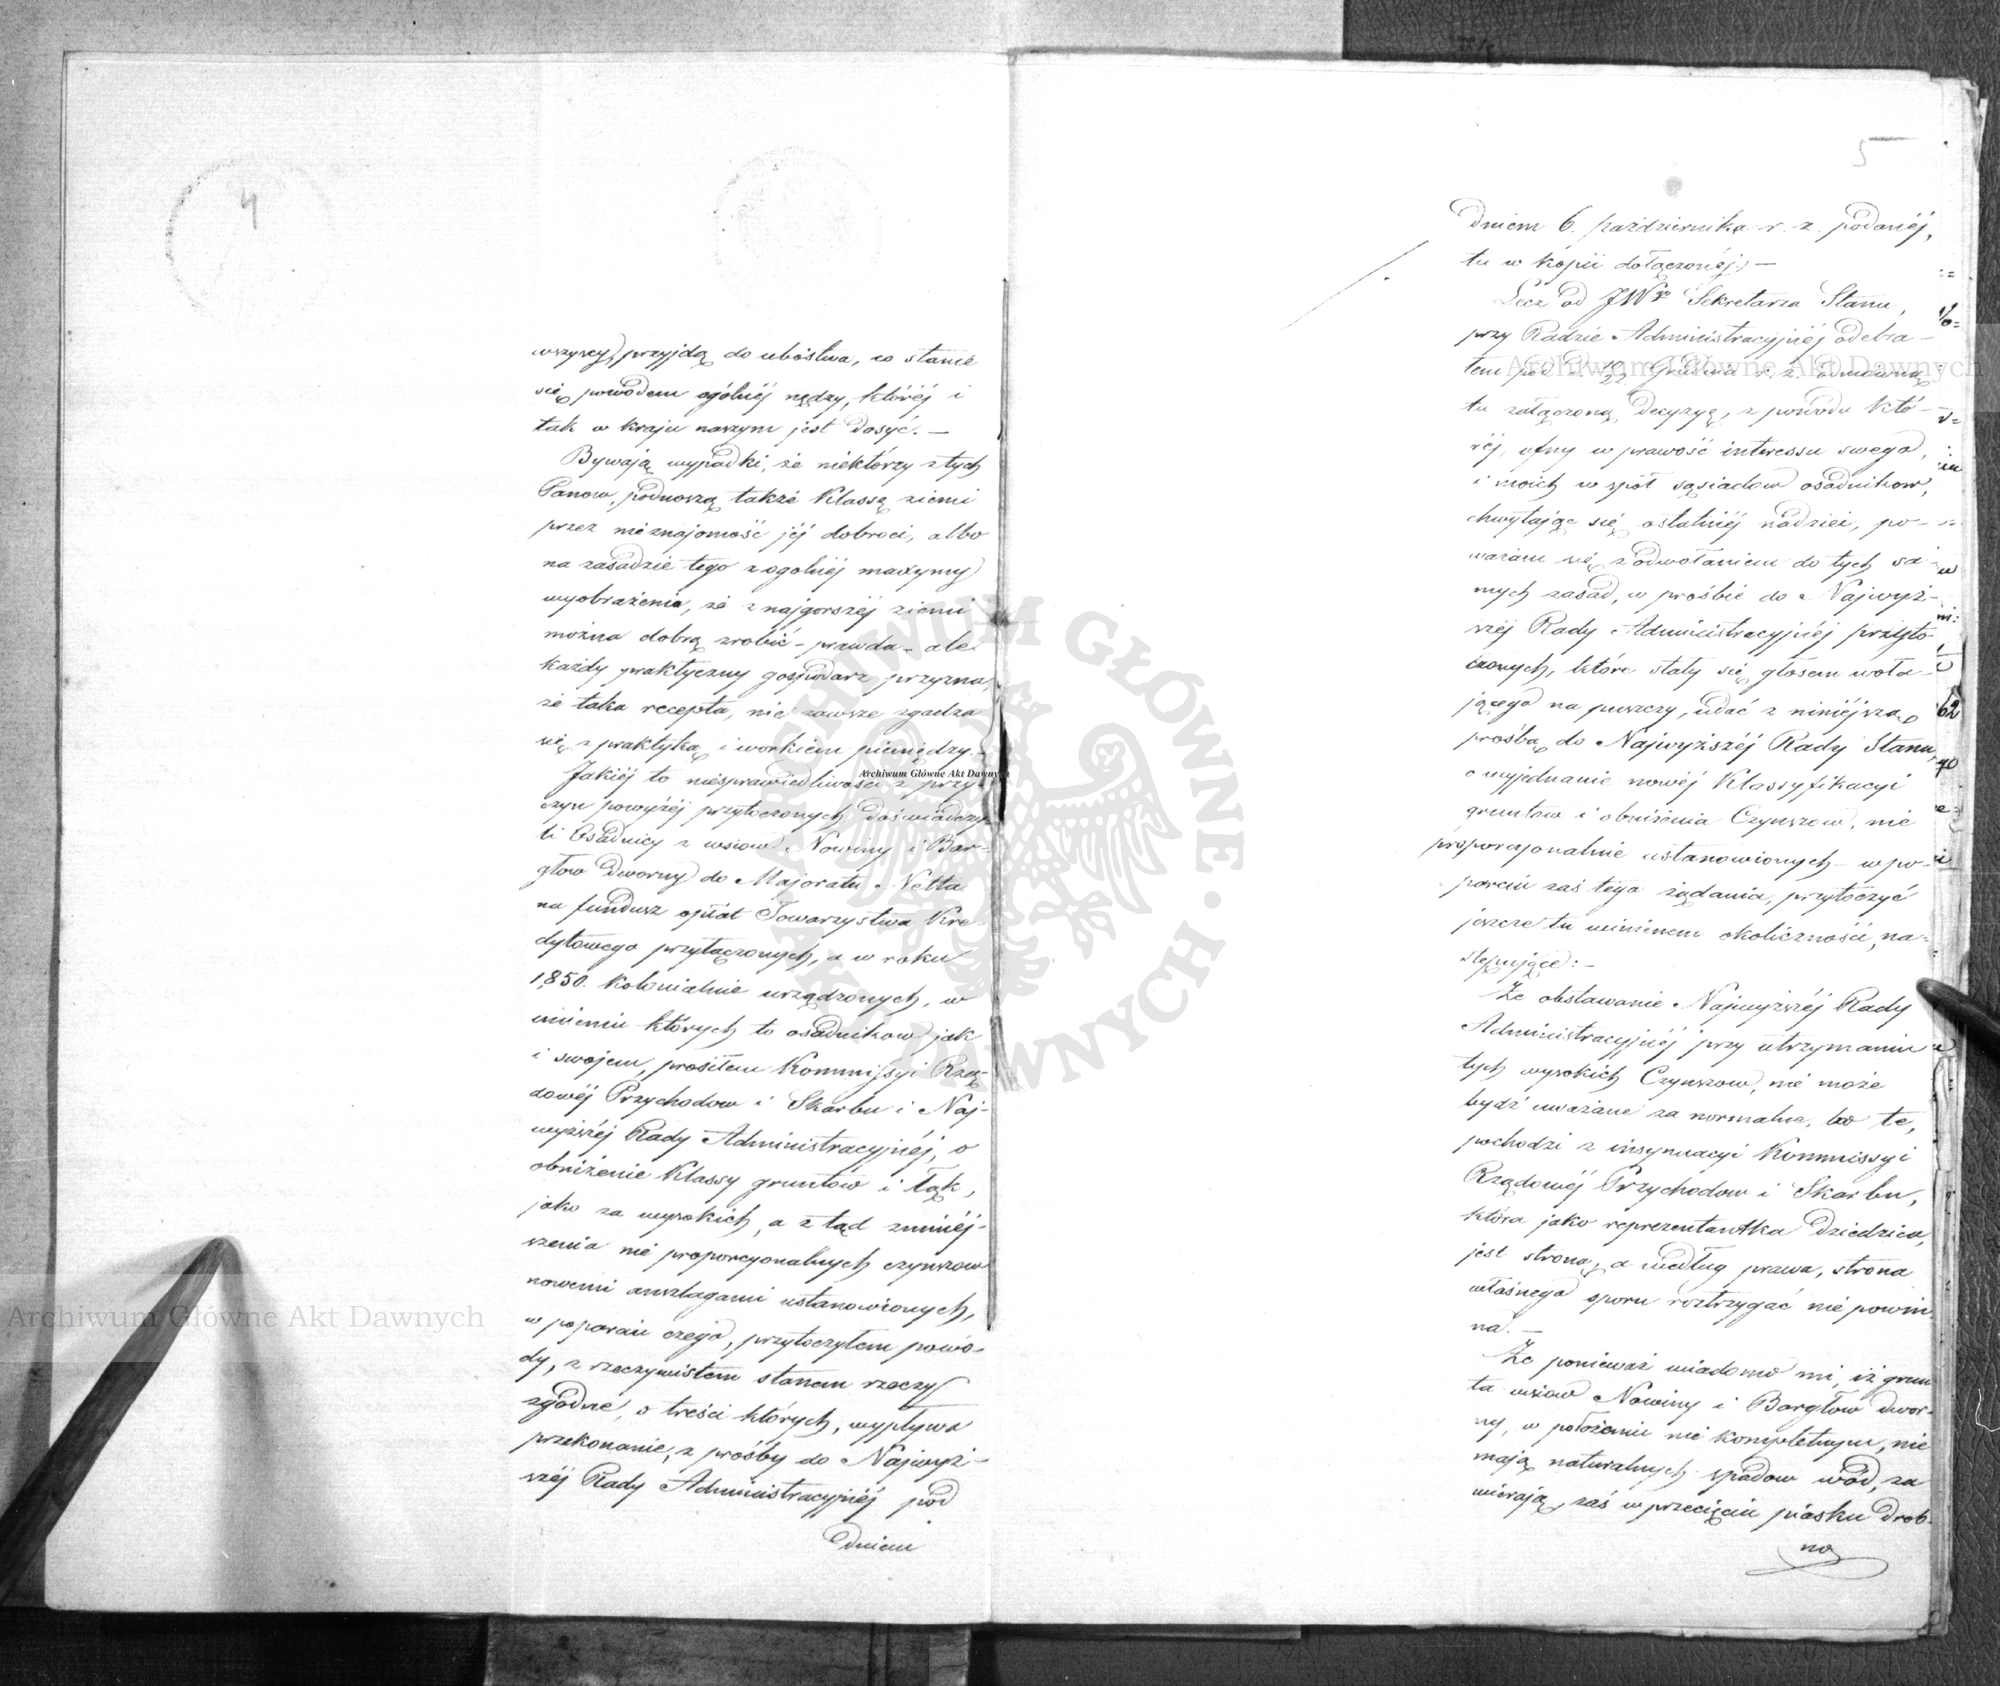 4
wszyscy, przyjdą do ubóstwa, co stanie
się powodem ogólnéj nędzy, któréj i
tak w kraju naszym jest dosyć. —
Bywają wypadki, że niektórzy z tych
Panow, podnoszą także Klassę ziemi
przez nieznajomość jéj dobroci, albo
na zasadzie tego z ogolnéj maxymy
wyobrażenia, że z najgorszéj ziemi
można dobrą zrobić – prawda – ale
każdy praktyczny gospodarz przyzna,
że taka recepta, nie zawsze zgadza
się z praktyką i workiem pieniędzy. –
Jakiéj to niesprawiedliwości z przy-
czyn powyżéj przytoczonych doświadczy-
li Osadnicy z wsiow Nowiny i Bar-
głow Dworny do Majoratu Netta
na fundusz opłat Towarzystwa Kre-
dytowego przyłączonych, a w roku
1,850. kolonialnie urządzonych, w
imieniu których to osadnikow jak
i swojem, prosiłem Kommissyi Rzą-
dowéj Przychodow i Skarbu i Naj-
wyższéj Rady Administracyjnéj, o
obniżenie Klassy gruntow i łąk,
jako za wysokich, a z tąd zmniéj-
szenia nie proporcyonalnych czynszow
nowemi anszlagami ustanowionych,
w poparciu czego, przytoczyłem powo-
dy, z rzeczywistem stanem rzeczy
zgodne, o treści których, wypływa
przekonanie, z prośby do Najwyż-
széj Rady Administracyjnéj pod
Dniem
5
Dniem 6. Października r. z. podanéj,
tu w kopii dołączonéj. –
Lecz od JWgo Sekretarza Stanu,
przy Radzie Administracyjnéj odebra-
łem pod d. 10/22 Grudnia r. z. odmowną
tu załączoną Decyzyę, z powodu któ-
réj, ufny w prawość interessu swego,
i moich w spół sąsiadow osadnikow,
chwytając się ostatniéj nadziei, po-
ważam się z odwołaniem do tych sa-
mych zasad, w prośbie do Najwyż-
széj Rady Administracyjnéj przyto
czonych, które stały się głosem woła-
jącego na puszczy, udać z niniéjszą
prośbą do Najwyższéj Rady Stanu,
o wyjednanie nowéj Klassyfikacyi
gruntow i obniżenia Czynszow, nie
proporcjonalnie ustanowionych – w po-
parciu zaś tego żądania, przytoczyć
jeszcze tu winienem okoliczności, na-
stępujące: –
Że obstawanie Najwyższéj Rady
Administracyjnéj przy utrzymaniu
tych wysokich Czynszow, nie może
bydź uważane za normalne, bo te,
pochodzi z insynuacyi Kommissyi
Rządowéj Przychodow i Skarbu,
która jako reprezentantka Dziedzica,
jest stroną, a według prawa, strona
własnego sporu roztrzygać nie powin
na. –
Że ponieważ wiadomo mi, iż grun
ta wsiow Nowiny i Bargłow dwor-
ny, w położeniu nie kompletnym, nie
mają naturalnych spadow wód, za
wierają zaś w przecięciu piasku drob-
no
Archiwum Główne Akt Dawnych
Archiwum Główne Akt Dawnych
Archiwum Główne Akt Dawnych
ARCHIWUM GŁÓWNE · AKT DAWNYCH ·